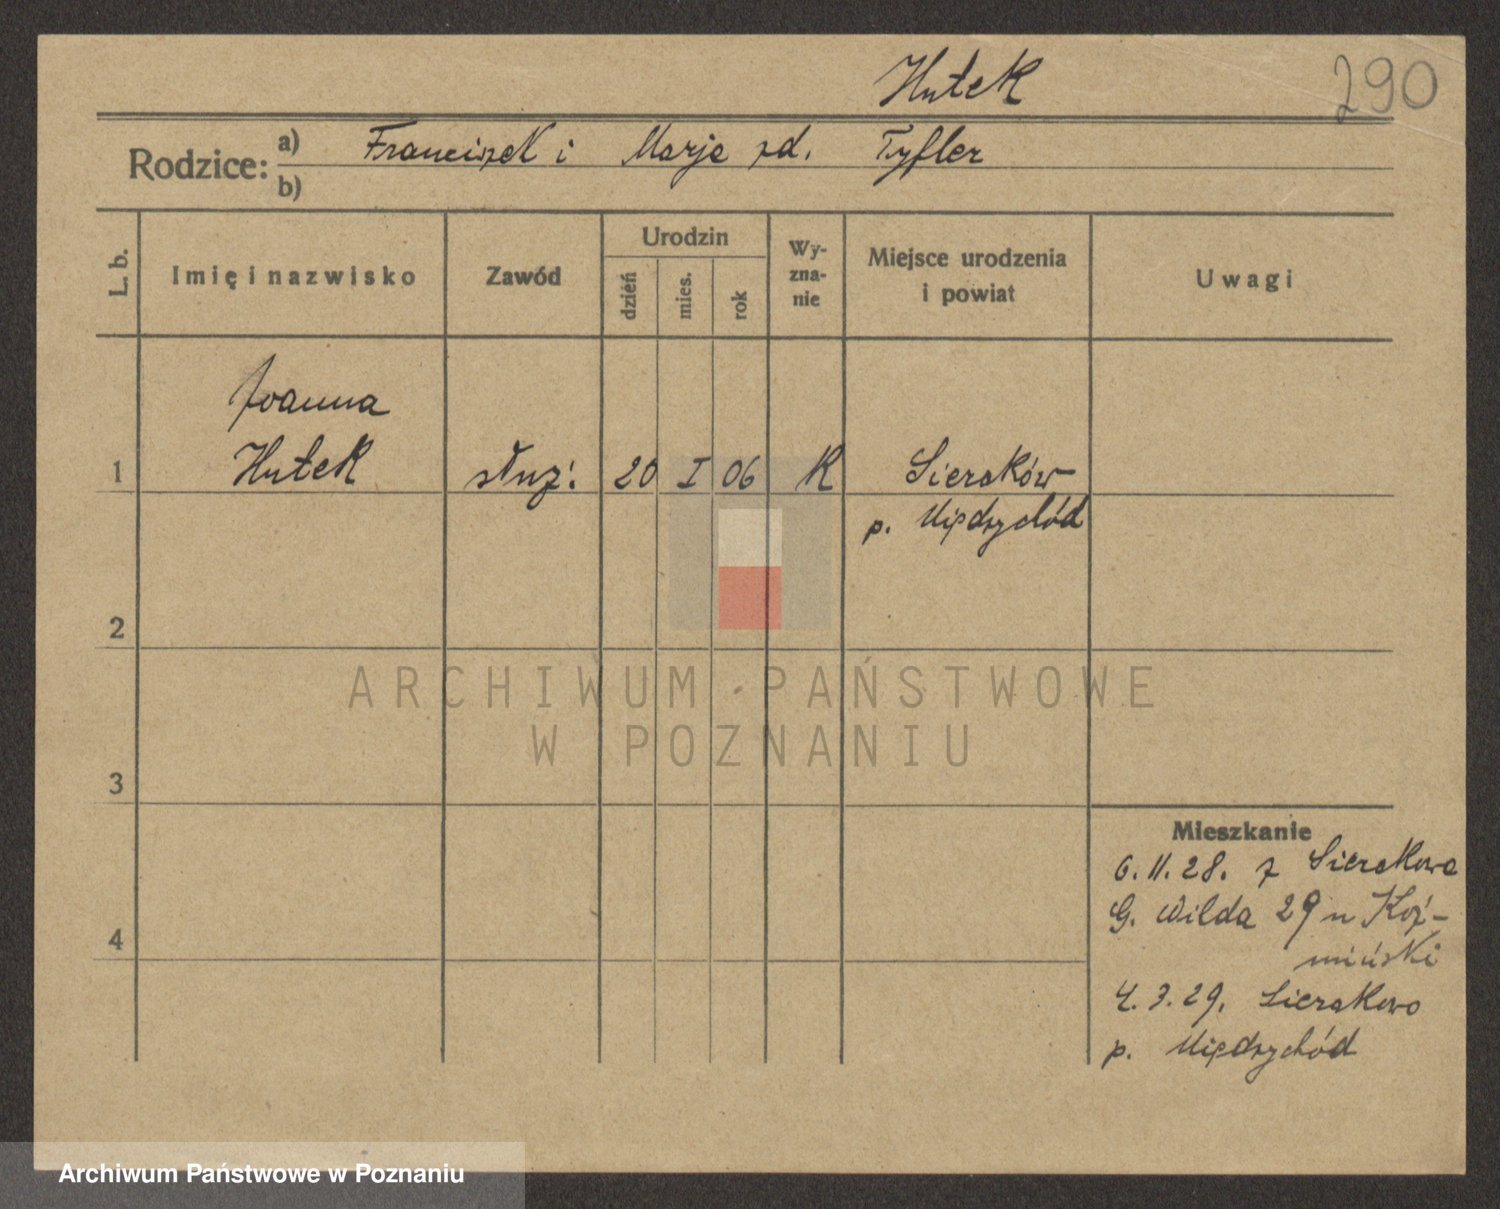 Hutek
290
Rodzice:
a) Franciszek i Marja zd. Tyfler
b)
L. b.
Imię i nazwisko
Zawód
Urodzin
dzień
mies.
rok
Wy-
zna-
nie
Miejsce urodzenia
i powiat
Uwagi
Joanna
1 Hutek służ: 20 I 06 K Sieraków
p. Międzychód
2
ARCHIWUM PAŃSTWOWE
W POZNANIU
3
Mieszkanie
6. 11. 28. z Sierakowa
G. Wilda 29 u Koź-
4
miński
4. 3. 29. Sierakowo
p. Międzychód
Archiwum Państwowe w Poznaniu